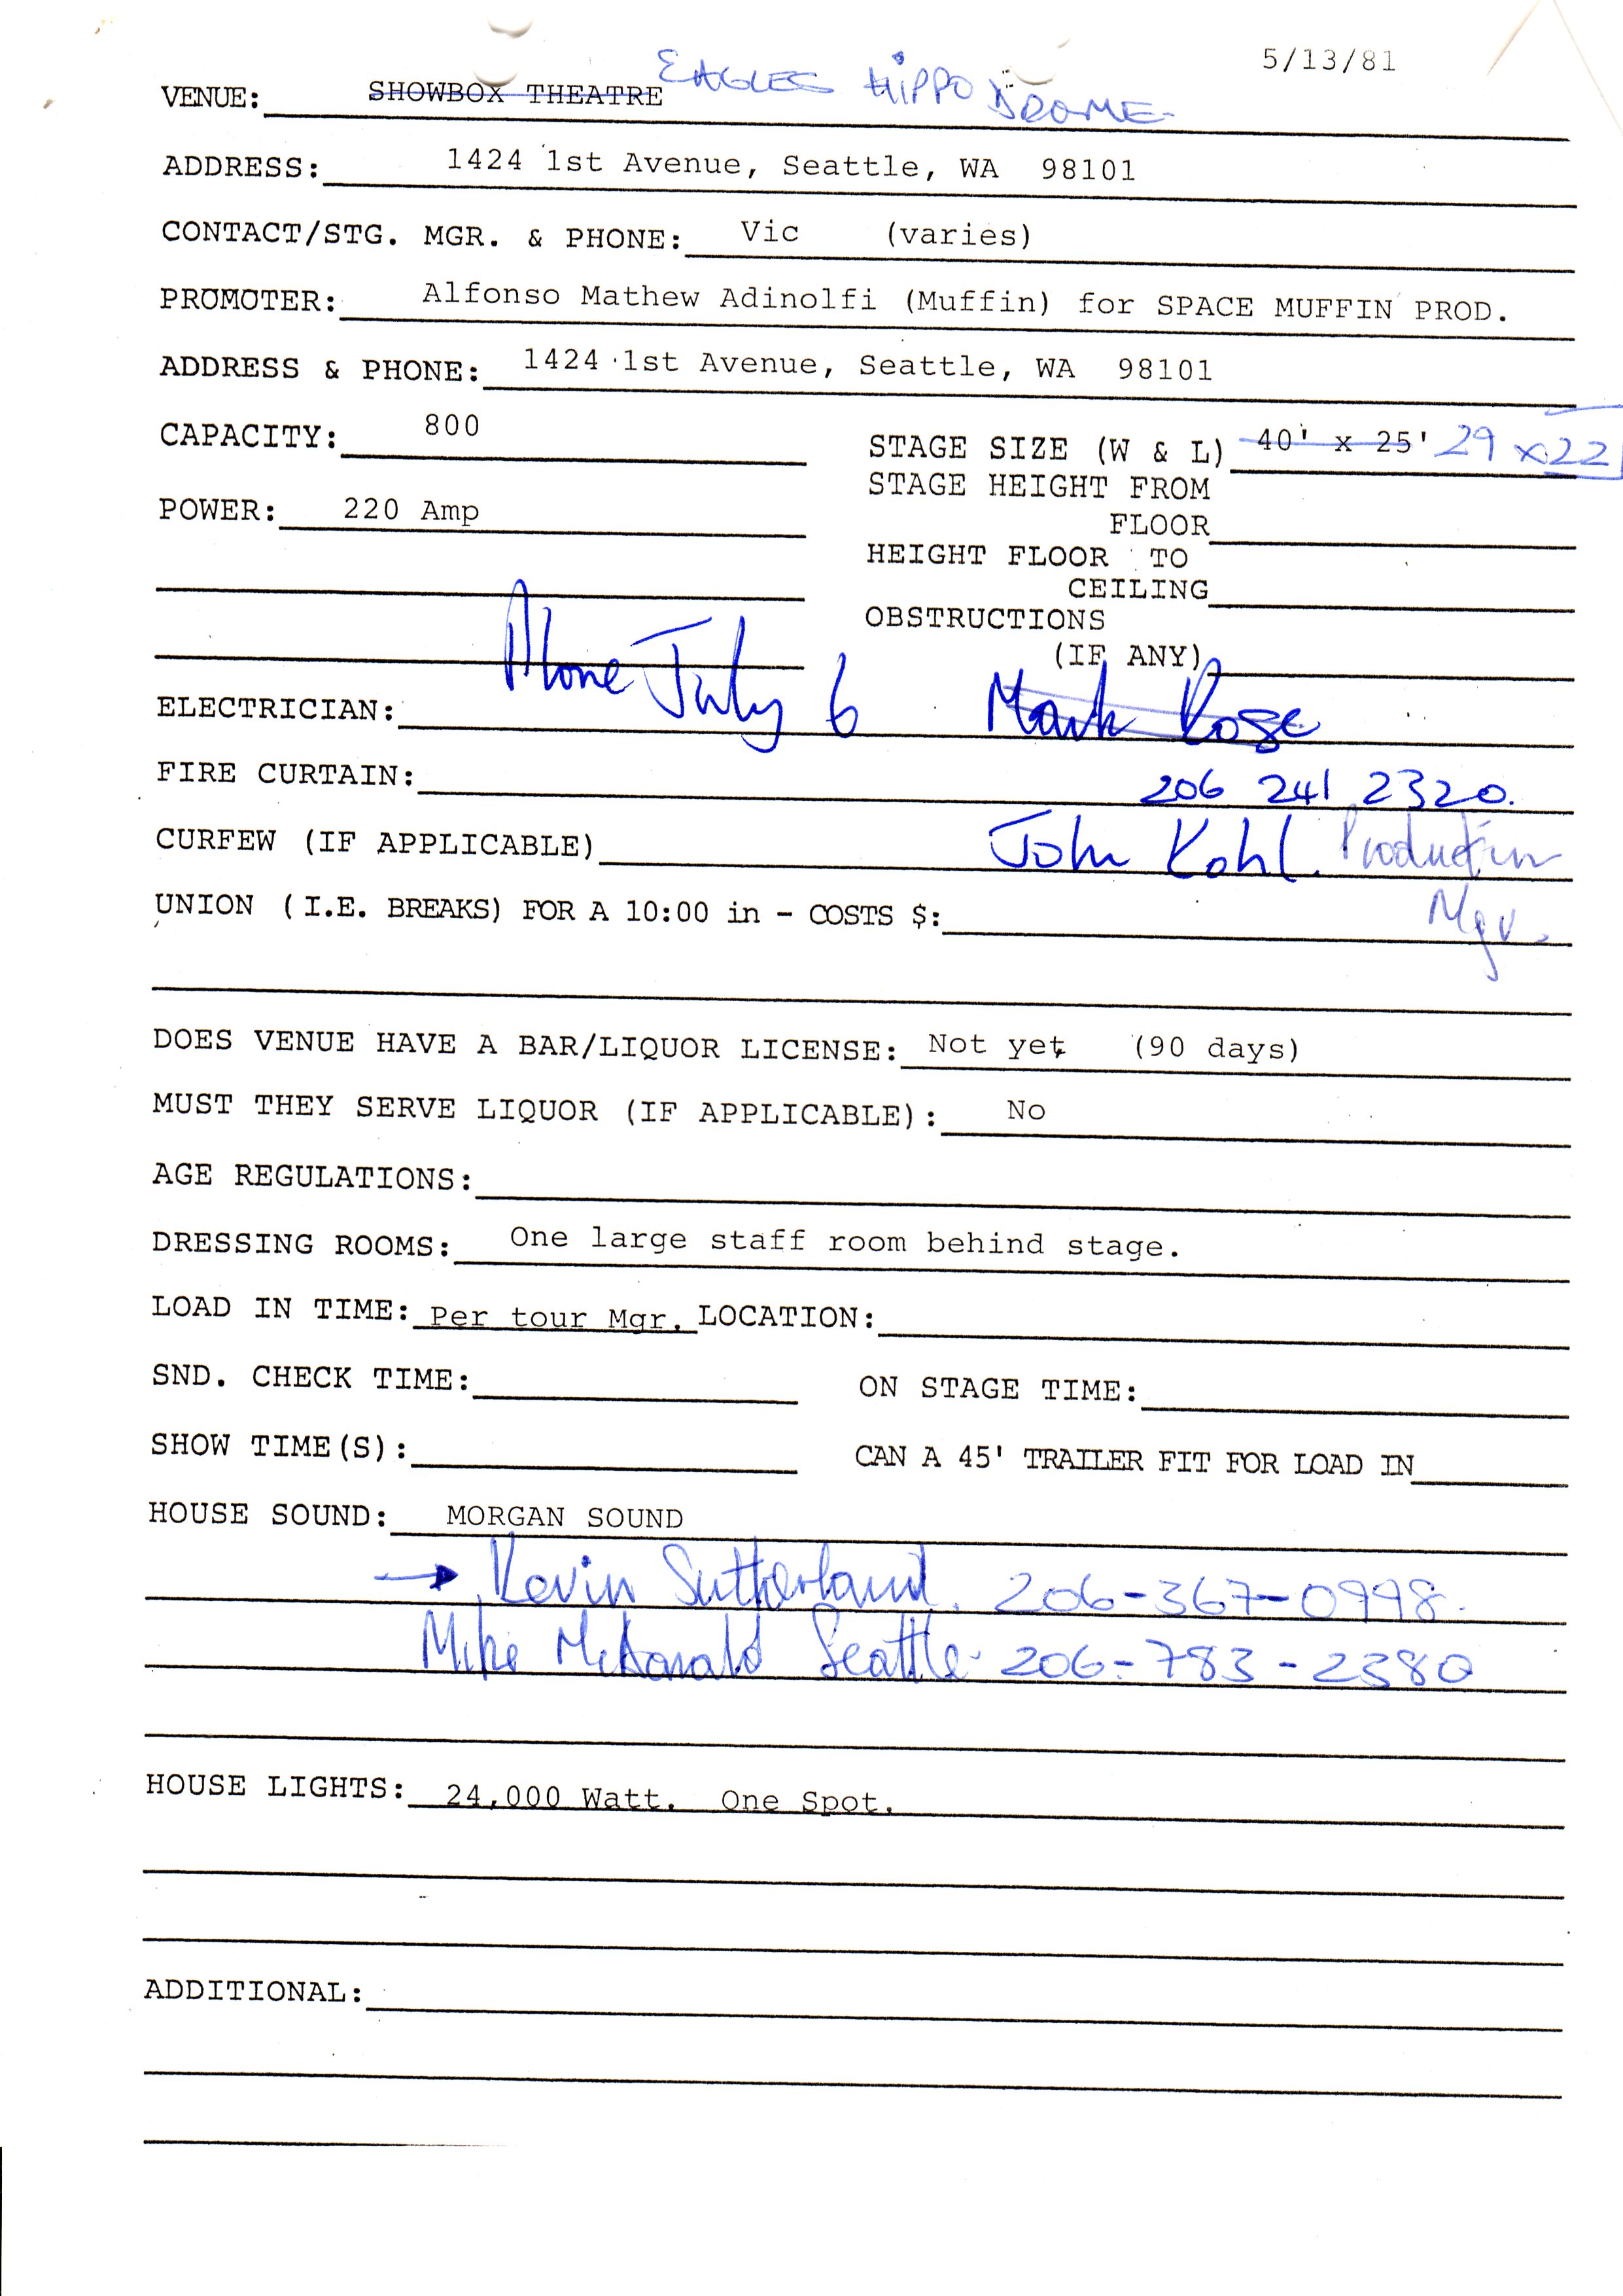 5/13/81
VENUE: SHOWBOX THEATRE EAGLES HIPPODROME
ADDRESS: 1424 1st Avenue, Seattle, WA 98101
CONTACT/STG. MGR. & PHONE: Vic (varies)
PROMOTER: Alfonso Mathew Adinolfi (Muffin) for SPACE MUFFIN PROD.
ADDRESS & PHONE: 1424 1st Avenue, Seattle, WA 98101
CAPACITY: 800
STAGE SIZE (W & L) 40' x 25' 29 x 22
STAGE HEIGHT FROM
FLOOR
POWER: 220 Amp
HEIGHT FLOOR TO
CEILING
OBSTRUCTIONS
(IF ANY)
Phone July 6 Mark Rose
ELECTRICIAN:
FIRE CURTAIN: 206 241 2320.
CURFEW (IF APPLICABLE) John Kohl. Production
Mgr.
UNION (I.E. BREAKS) FOR A 10:00 in - COSTS $:
DOES VENUE HAVE A BAR/LIQUOR LICENSE: Not yet (90 days)
MUST THEY SERVE LIQUOR (IF APPLICABLE): No
AGE REGULATIONS:
DRESSING ROOMS: One large staff room behind stage.
LOAD IN TIME: Per tour Mgr. LOCATION:
SND. CHECK TIME: ON STAGE TIME:
SHOW TIME(S): CAN A 45' TRAILER FIT FOR LOAD IN
HOUSE SOUND: MORGAN SOUND
→ Kevin Sutherland. 206-367-0998.
Mike McDonald Seattle 206-783-2380
HOUSE LIGHTS: 24,000 Watt. One Spot.
ADDITIONAL: